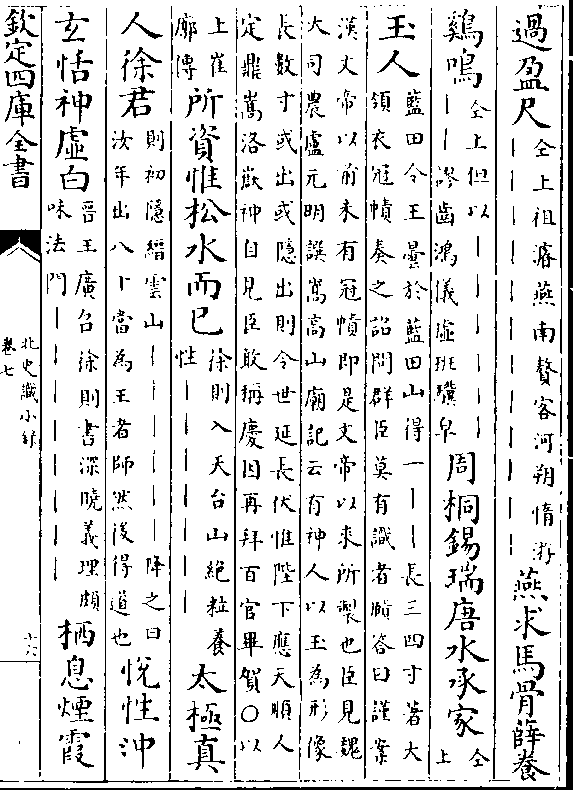 過盈尺
仝上祖濬燕南贅客河朔惰游
｜｜｜｜｜｜｜｜｜｜
燕求馬骨薛養
雞鳴
仝上但以｜｜｜｜｜｜
｜｜謬齒鴻儀虛班驥皁
周桐錫瑞唐水承家
仝
上
玉人
藍田令王曇於藍田山得一｜｜長三四寸著大
領衣冠幘奏之詔問群臣莫有識者賾答曰謹案
漢文帝以前未有冠幘即是文帝以來所製也臣見魏
大司農盧元明撰嵩高山廟記云有神人以玉為形像
長數寸或出或隱出則令世延長伏惟陛下應天順人
定鼎嵩洛嶽神自見臣敢稱慶因再拜百官畢賀○以
上崔
廓傳
所資惟松水而已
徐則入天台山絶粒養
性｜｜｜｜｜｜｜
太極真
人徐君
則初隱縉雲山｜｜｜｜｜降之曰
汝年出八十當為王者師然後得道也
悅性沖
玄恬神虛白
晉王廣召徐則書深曉義理頗
味法門｜｜｜｜｜｜｜｜
栖息煙霞
欽定四庫全書
北史識小錄
卷七
十六